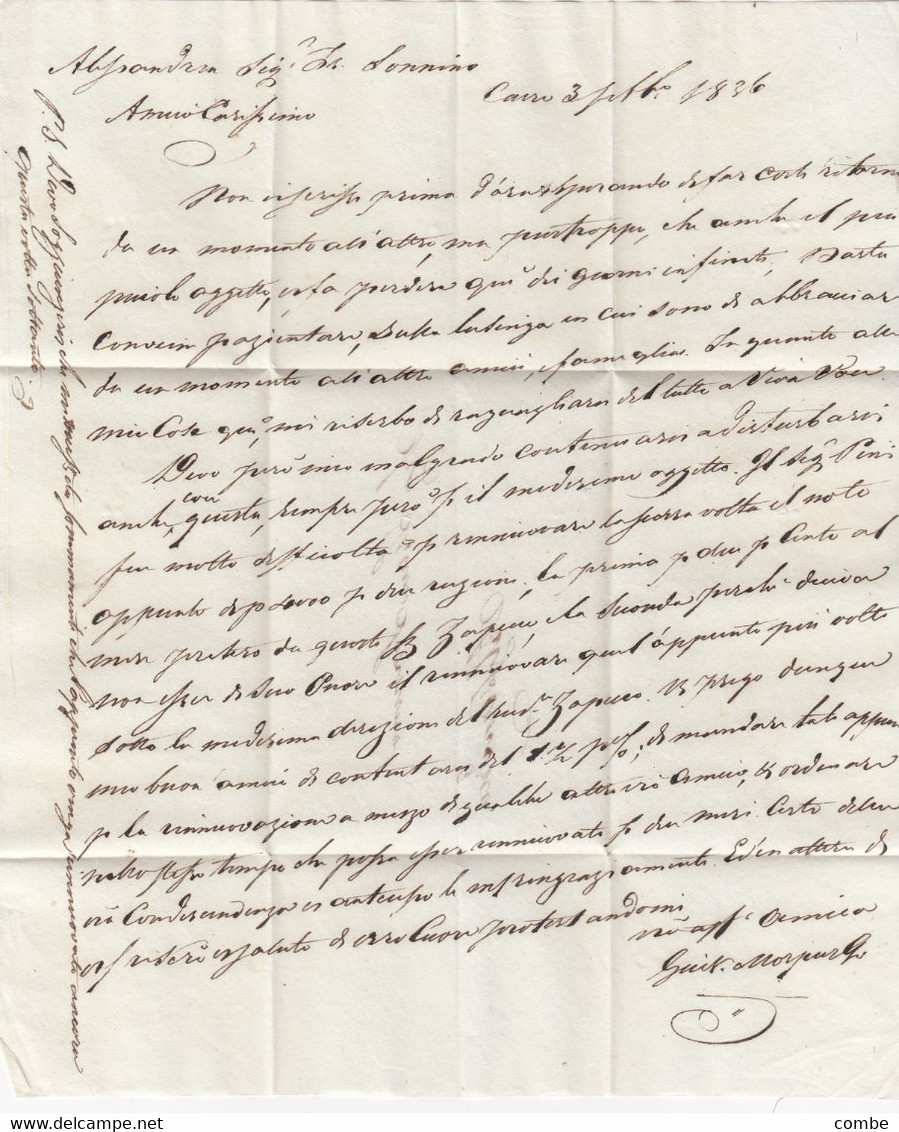 Alessandria Sig.r Is. Sonnino
Cairo 3 settb.e 1836
Amico Carissimo
Non vi scrissi prima d'ora sperando di far costì ritorno
da un momento all'altro, ma purtroppo, che anche il più
piccolo oggetto, vi fa perdere quì dei giorni infiniti, Basta
convien pazientare, sulla lusinga in cui sono di abbracciar
da un momento all'altro amici, e famiglia. In quanto alle
mie Cose quì, mi riserbo di ragguagliarvi del tutto a Viva Voce.
Devo però mio malgrado continuarvi a disturbarvi
anche con questa, sempre però p il medesimo oggetto. Il Sig.r Pini
fa molte difficoltà p rinnuovare la terza volta el noto
appunto di p p due ragioni, la prima p due p Cento al
mese preteso da questo Zapeco, e la seconda perchè diceva
non esser di suo Cuore il rinnuovare quel appunto più volte
sotto la medesima direzione del sud.o Zapeco. Vi prego dunque
mio buon amici di contentarvi del 1 ½ p%, di mandare tale appunto
p la rinnuovazione a mezzo di qualche altro vrò Amico, & ordinare
nello stesso tempo che possa esser rinnuovato p due mesi. Certo della
vrã Condiscendenza vi anticipo li ringraziamenti. Ed in attesa di
vi saluto di vero Cuore protestandomi
vrõ aff.o Amico
Giuk. Morpurgo
P.S. Devo soggiungervi che l'appunto venga rinnuovato ancora
questa volta soltanto
combe